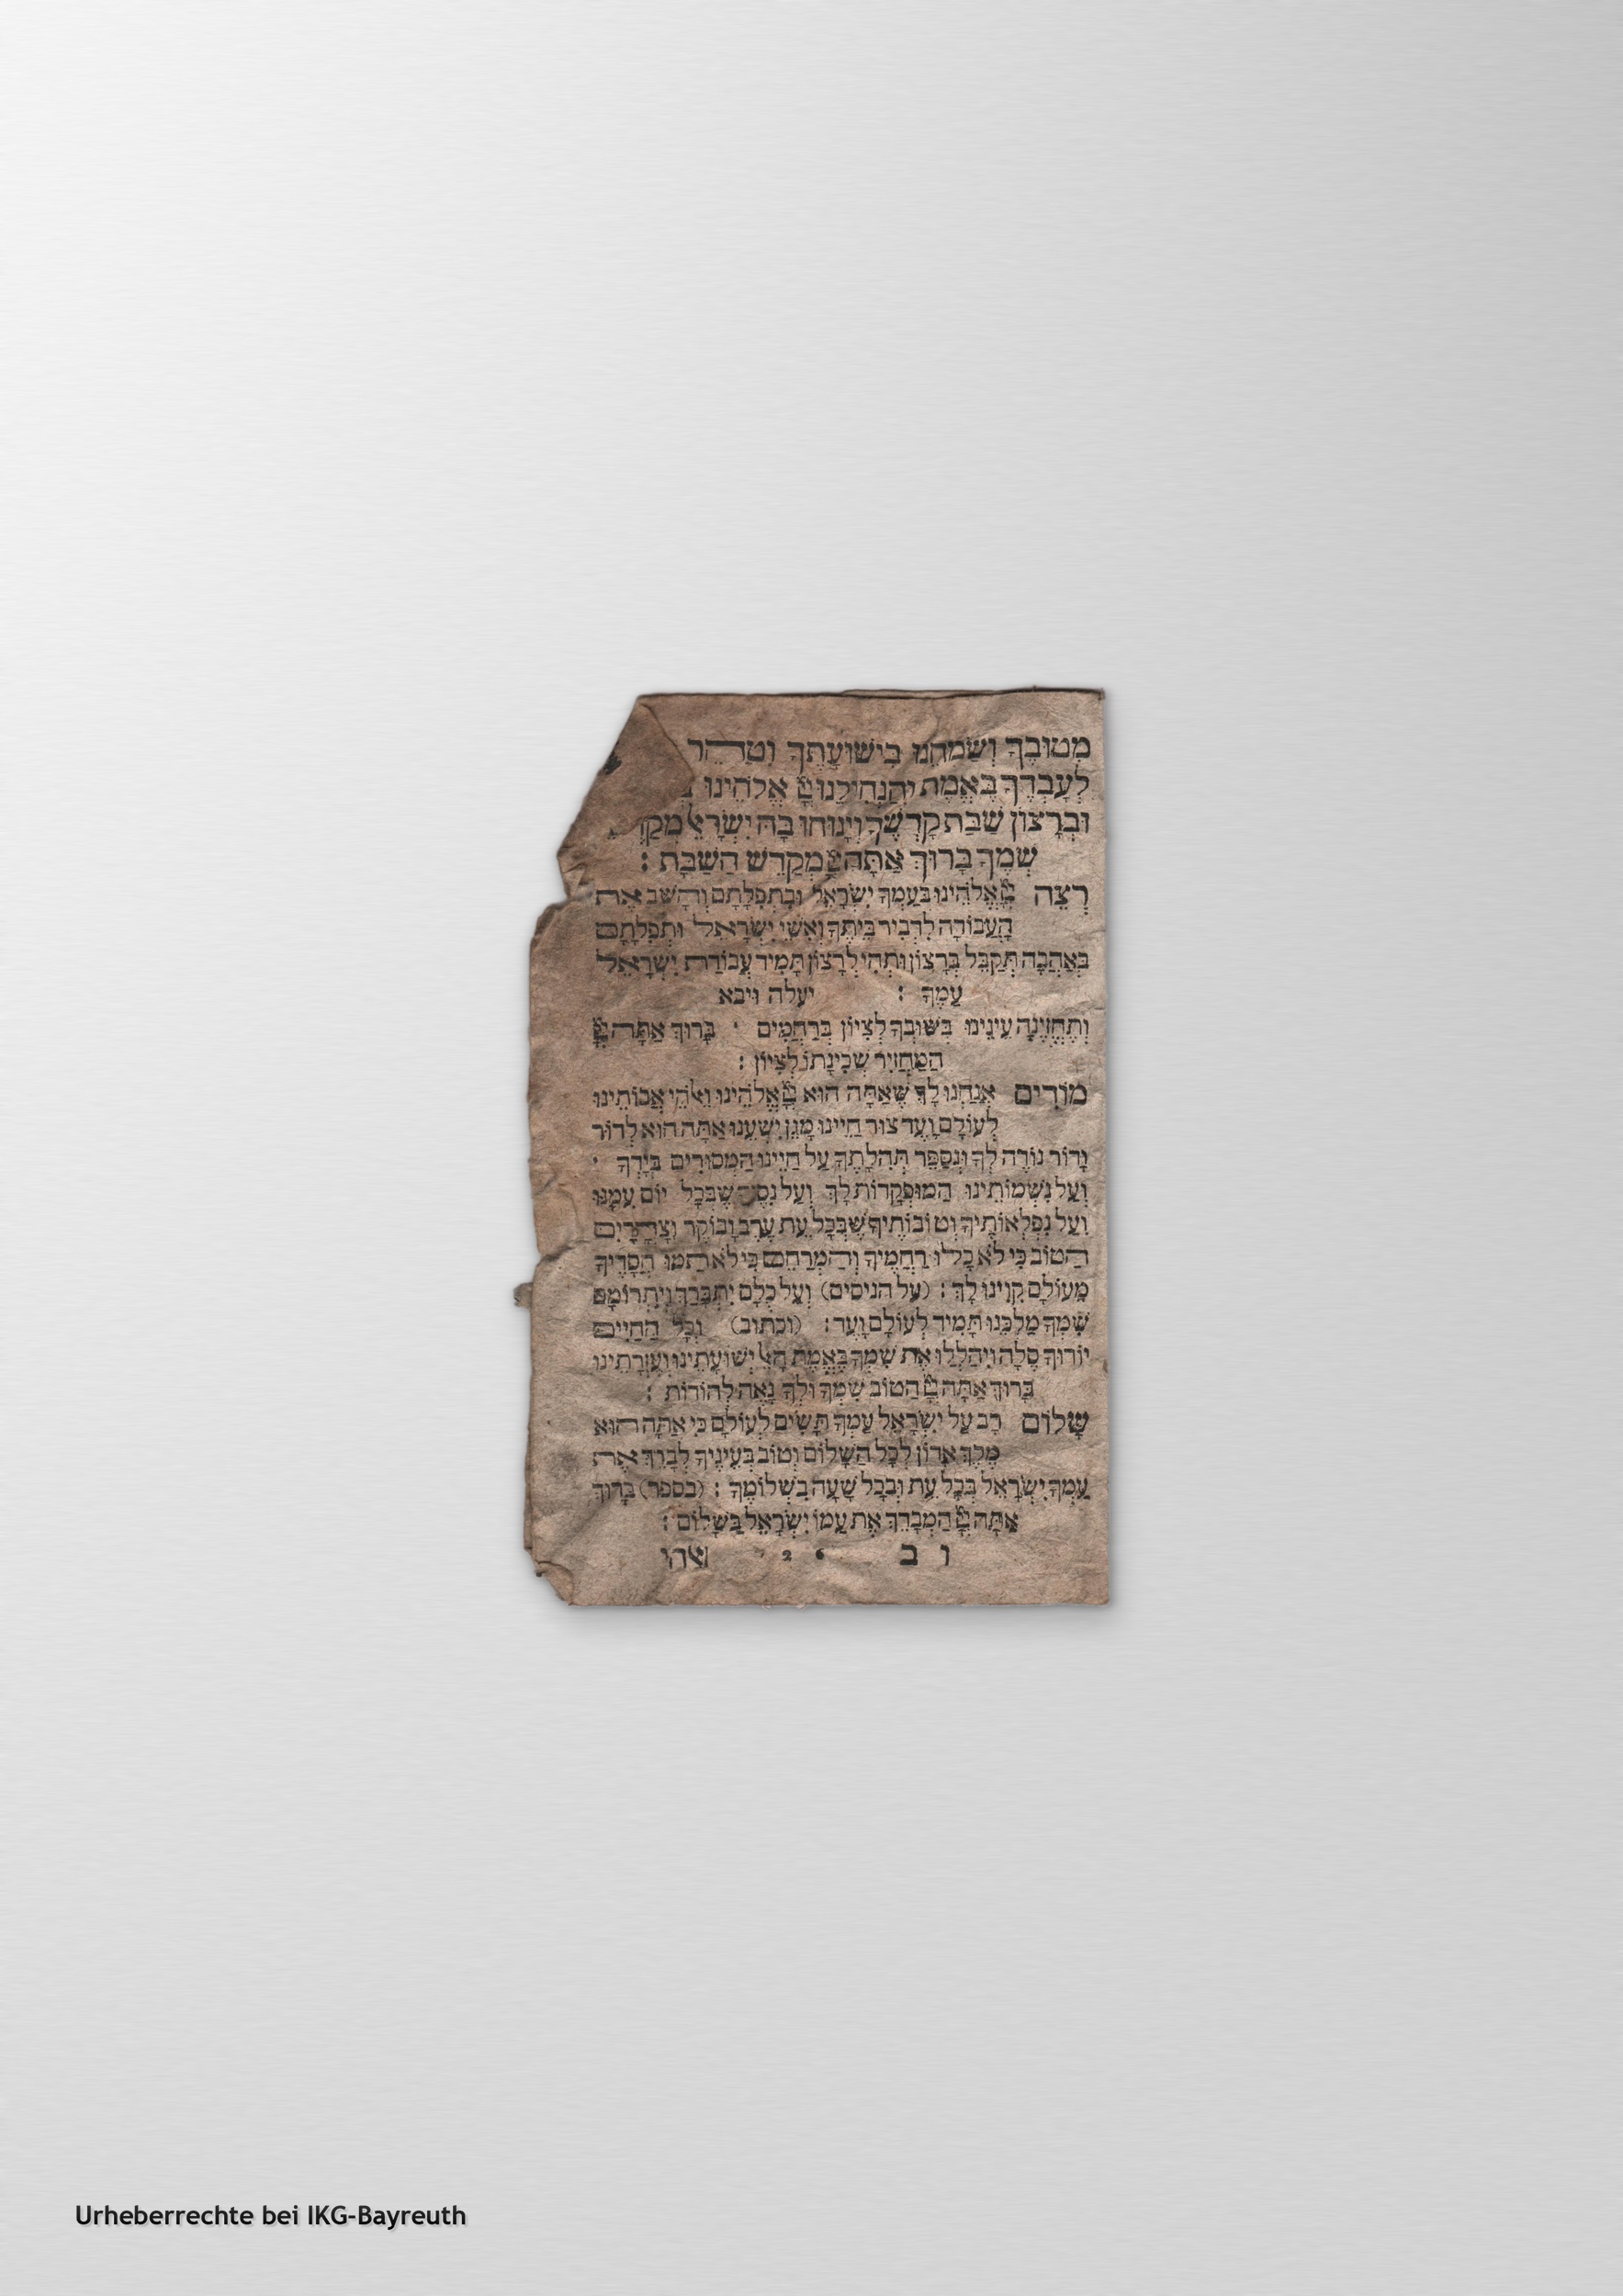 מִטוּבֶךָ וְשַׂמְחֵנוּ בִּישׁוּעָתֶךָ וְטַהֵר
לְעָבְדְּךָ בֶּאֱמֶת וְהַנְחִילֵנוּ יְיָ אֱלֹהֵינוּ
וּבְרָצוֹן שַׁבַּת קָדְשֶׁךָ וְיָנוּחוּ בָהּ יִשְׂרָאֵל
שְׁמֶךָ בָּרוּךְ אַתָּה יְיָ מְקַדֵּשׁ הַשַּׁבָּת :
רְצֵה יְיָ אֱלֹהֵינוּ בְּעַמְּךָ יִשְׂרָאֵל וּבִתְפִלָּתָם וְהָשֵׁב אֶת
הָעֲבוֹדָה לִדְבִיר בֵּיתֶךָ וְאִשֵּׁי יִשְׂרָאֵל וּתְפִלָּתָם
בְּאַהֲבָה תְּקַבֵּל בְּרָצוֹן וּתְהִי לְרָצוֹן תָּמִיד עֲבוֹדַת יִשְׂרָאֵל
עַמֶּךָ : יעלה ויבא
וְתֶחֱזֶינָה עֵינֵינוּ בְּשׁוּבְךָ לְצִיּוֹן בְּרַחֲמִים · בָּרוּךְ אַתָּה יְיָ
הַמַּחֲזִיר שְׁכִינָתוֹ לְצִיּוֹן :
מוֹדִים אֲנַחְנוּ לָךְ שֶׁאַתָּה הוּא יְיָ אֱלֹהֵינוּ וֵאלֹהֵי אֲבוֹתֵינוּ
לְעוֹלָם וָעֶד צוּר חַיֵּינוּ מָגֵן יִשְׁעֵנוּ אַתָּה הוּא לְדוֹר
וָדוֹר נוֹדֶה לְּךָ וּנְסַפֵּר תְּהִלָּתֶךָ עַל חַיֵּינוּ הַמְּסוּרִים בְּיָדֶךָ ·
וְעַל נִשְׁמוֹתֵינוּ הַפְּקֻדוֹת לָךְ וְעַל נִסֶּיךָ שֶׁבְּכָל יוֹם עִמָּנוּ
וְעַל נִפְלְאוֹתֶיךָ וְטוֹבוֹתֶיךָ שֶׁבְּכָל עֵת עֶרֶב וָבוֹקֶר וְצָהֳרָיִם
הַטּוֹב כִּי לֹא כָלוּ רַחֲמֶיךָ וְהַמְרַחֵם כִּי לֹא תַמּוּ חֲסָדֶיךָ
מֵעוֹלָם קִוִּינוּ לָךְ : (על הניסים) וְעַל כֻּלָּם יִתְבָּרַךְ וְיִתְרוֹמַם
שִׁמְךָ מַלְכֵּנוּ תָּמִיד לְעוֹלָם וָעֶד : (וכתוב) וְכָל הַחַיִּים
יוֹדוּךָ סֶּלָה וִיהַלְלוּ אֶת שִׁמְךָ בֶּאֱמֶת הָאֵל יְשׁוּעָתֵינוּ וְעֶזְרָתֵינוּ
בָּרוּךְ אַתָּה יְיָ הַטּוֹב שִׁמְךָ וּלְךָ נָאֶה לְהוֹדוֹת :
שָׁלוֹם רָב עַל יִשְׂרָאֵל עַמְּךָ תָּשִׂים לְעוֹלָם כִּי אַתָּה הוּא
מֶלֶךְ אָדוֹן לְכָל הַשָּׁלוֹם וְטוֹב בְּעֵינֶיךָ לְבָרֵךְ אֶת
עַמְּךָ יִשְׂרָאֵל בְּכָל עֵת וּבְכָל שָׁעָה בִּשְׁלוֹמֶךָ : (בספר) בָּרוּךְ
אַתָּה יְיָ הַמְבָרֵךְ אֶת עַמּוֹ יִשְׂרָאֵל בַּשָּׁלוֹם :
ו ב 2 6 אהי
Urheberrechte bei IKG-Bayreuth